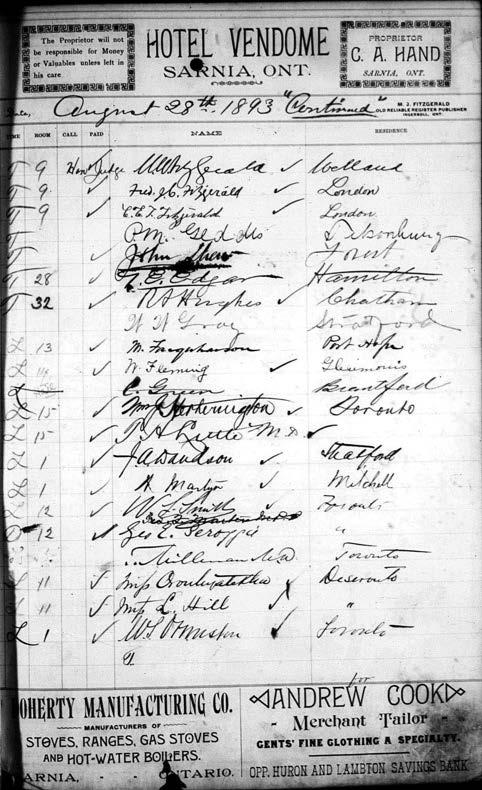 The Proprietor will not
be responsible for Money
or Valuables unless left in
his care
HOTEL VENDOME
SARNIA, ONT.
PROPRIETOR
C. A. HAND
SARNIA, ONT.
Date, August 28th 1893 "Continued"
M. J. FITZGERALD
OLD RELIABLE REGISTER PUBLISHER
INGERSOLL, ONT.
TIME ROOM CALL PAID NAME RESIDENCE
9 Judge Welland
9 Fred. J. C. Fitzgerald London
9 Fitzgerald London
P. M. Geddis
John Shaw Forest
28 Edgar Hamilton
32 Hughes Chatham
W H Gray Stratford
13 M. Farquharson Port Hope
14 W. Fleming
C Green Brantford
15 Hetherington Toronto
15 Little M.D
1 J A Davidson Stratford
1 Martyn Mitchell
12 W. L. Smith Toronto
12 Geo E. "
Toronto
11 Miss Deseronto
11 Miss L. Hill "
1 W. S. Ormiston Toronto
DOHERTY MANUFACTURING CO.
MANUFACTURERS OF
STOVES, RANGES, GAS STOVES
AND HOT-WATER BOILERS.
SARNIA, - - ONTARIO.
for
ANDREW COOK
- Merchant Tailor -
GENTS' FINE CLOTHING A SPECIALTY.
OPP. HURON AND LAMBTON SAVINGS BANK